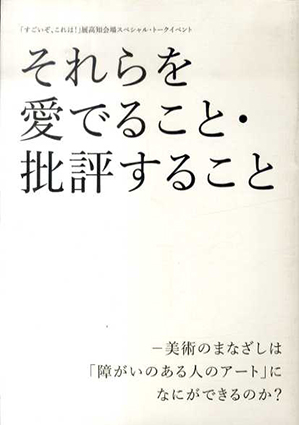 「すごいぞ、これは！」展高知会場スペシャル・トークイベント
それらを
愛でること・
批評すること
－美術のまなざしは
「障がいのある人のアート」に
なにができるのか？